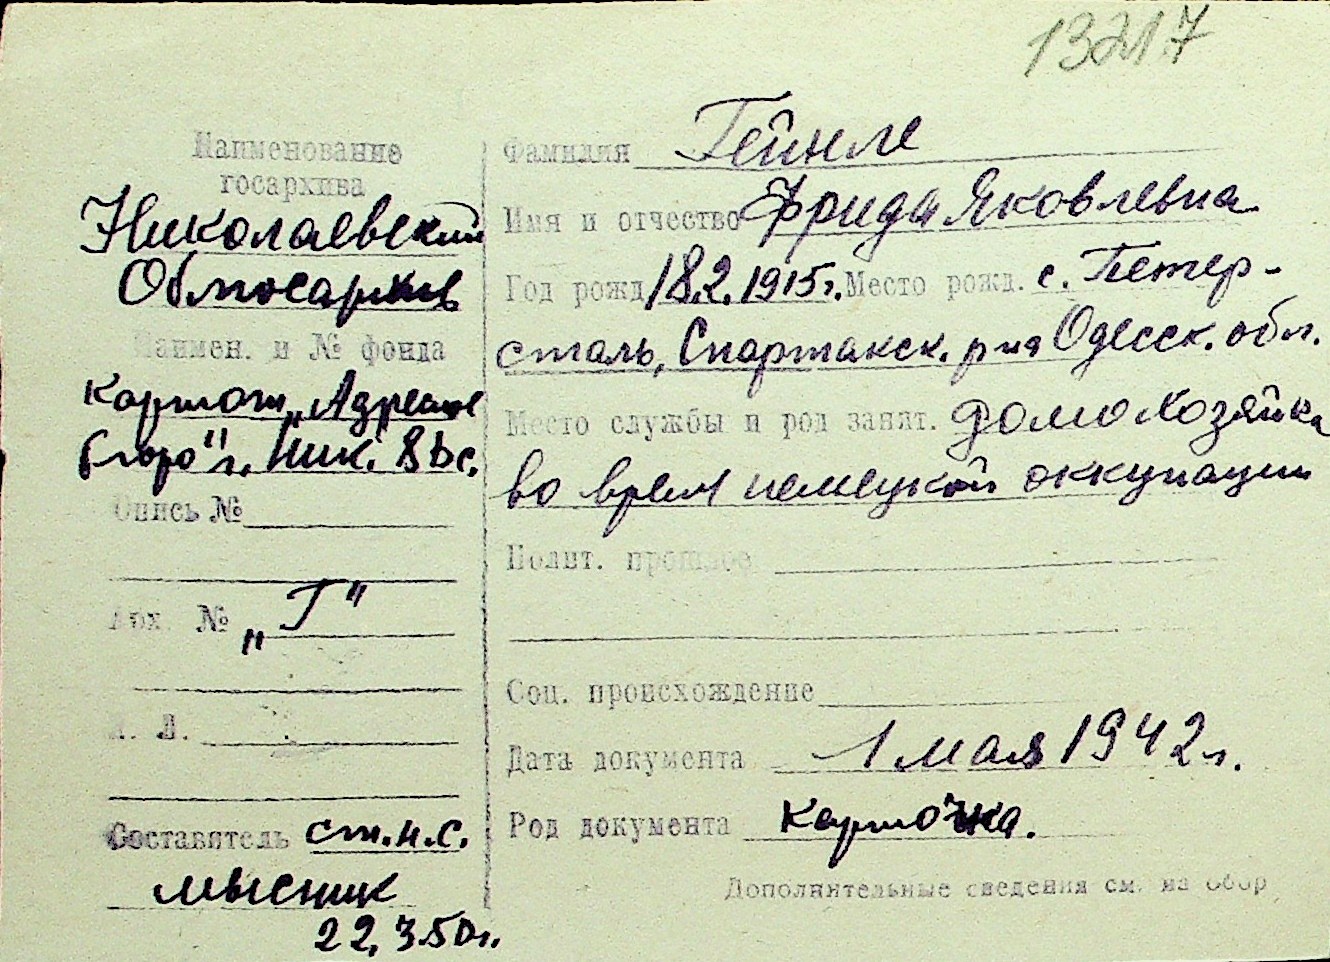 13217
Наименование
госархива
Николаевский
Облгосархив
Наимен. и № фонда
Картот. „Адресное
бюро" г. Ник.
Опись №
Арх. № „Г"
Л. Л.
Составитель ст.н.с.
Мысник
22.3.50г.
Фамилия Гейнле
Имя и отчество Фрида Яковлевна
Год рожд. 18.2.1915г. Место рожд. с. Петер-
сталь, Спартакск. р-на Одесск. обл.
Место службы и род занят. домохозяйка
во время немецкой оккупации
Полит. прошлое
Соц. происхождение
Дата документа 1 мая 1942г.
Род документа карточка.
Дополнительные сведения см. на обор